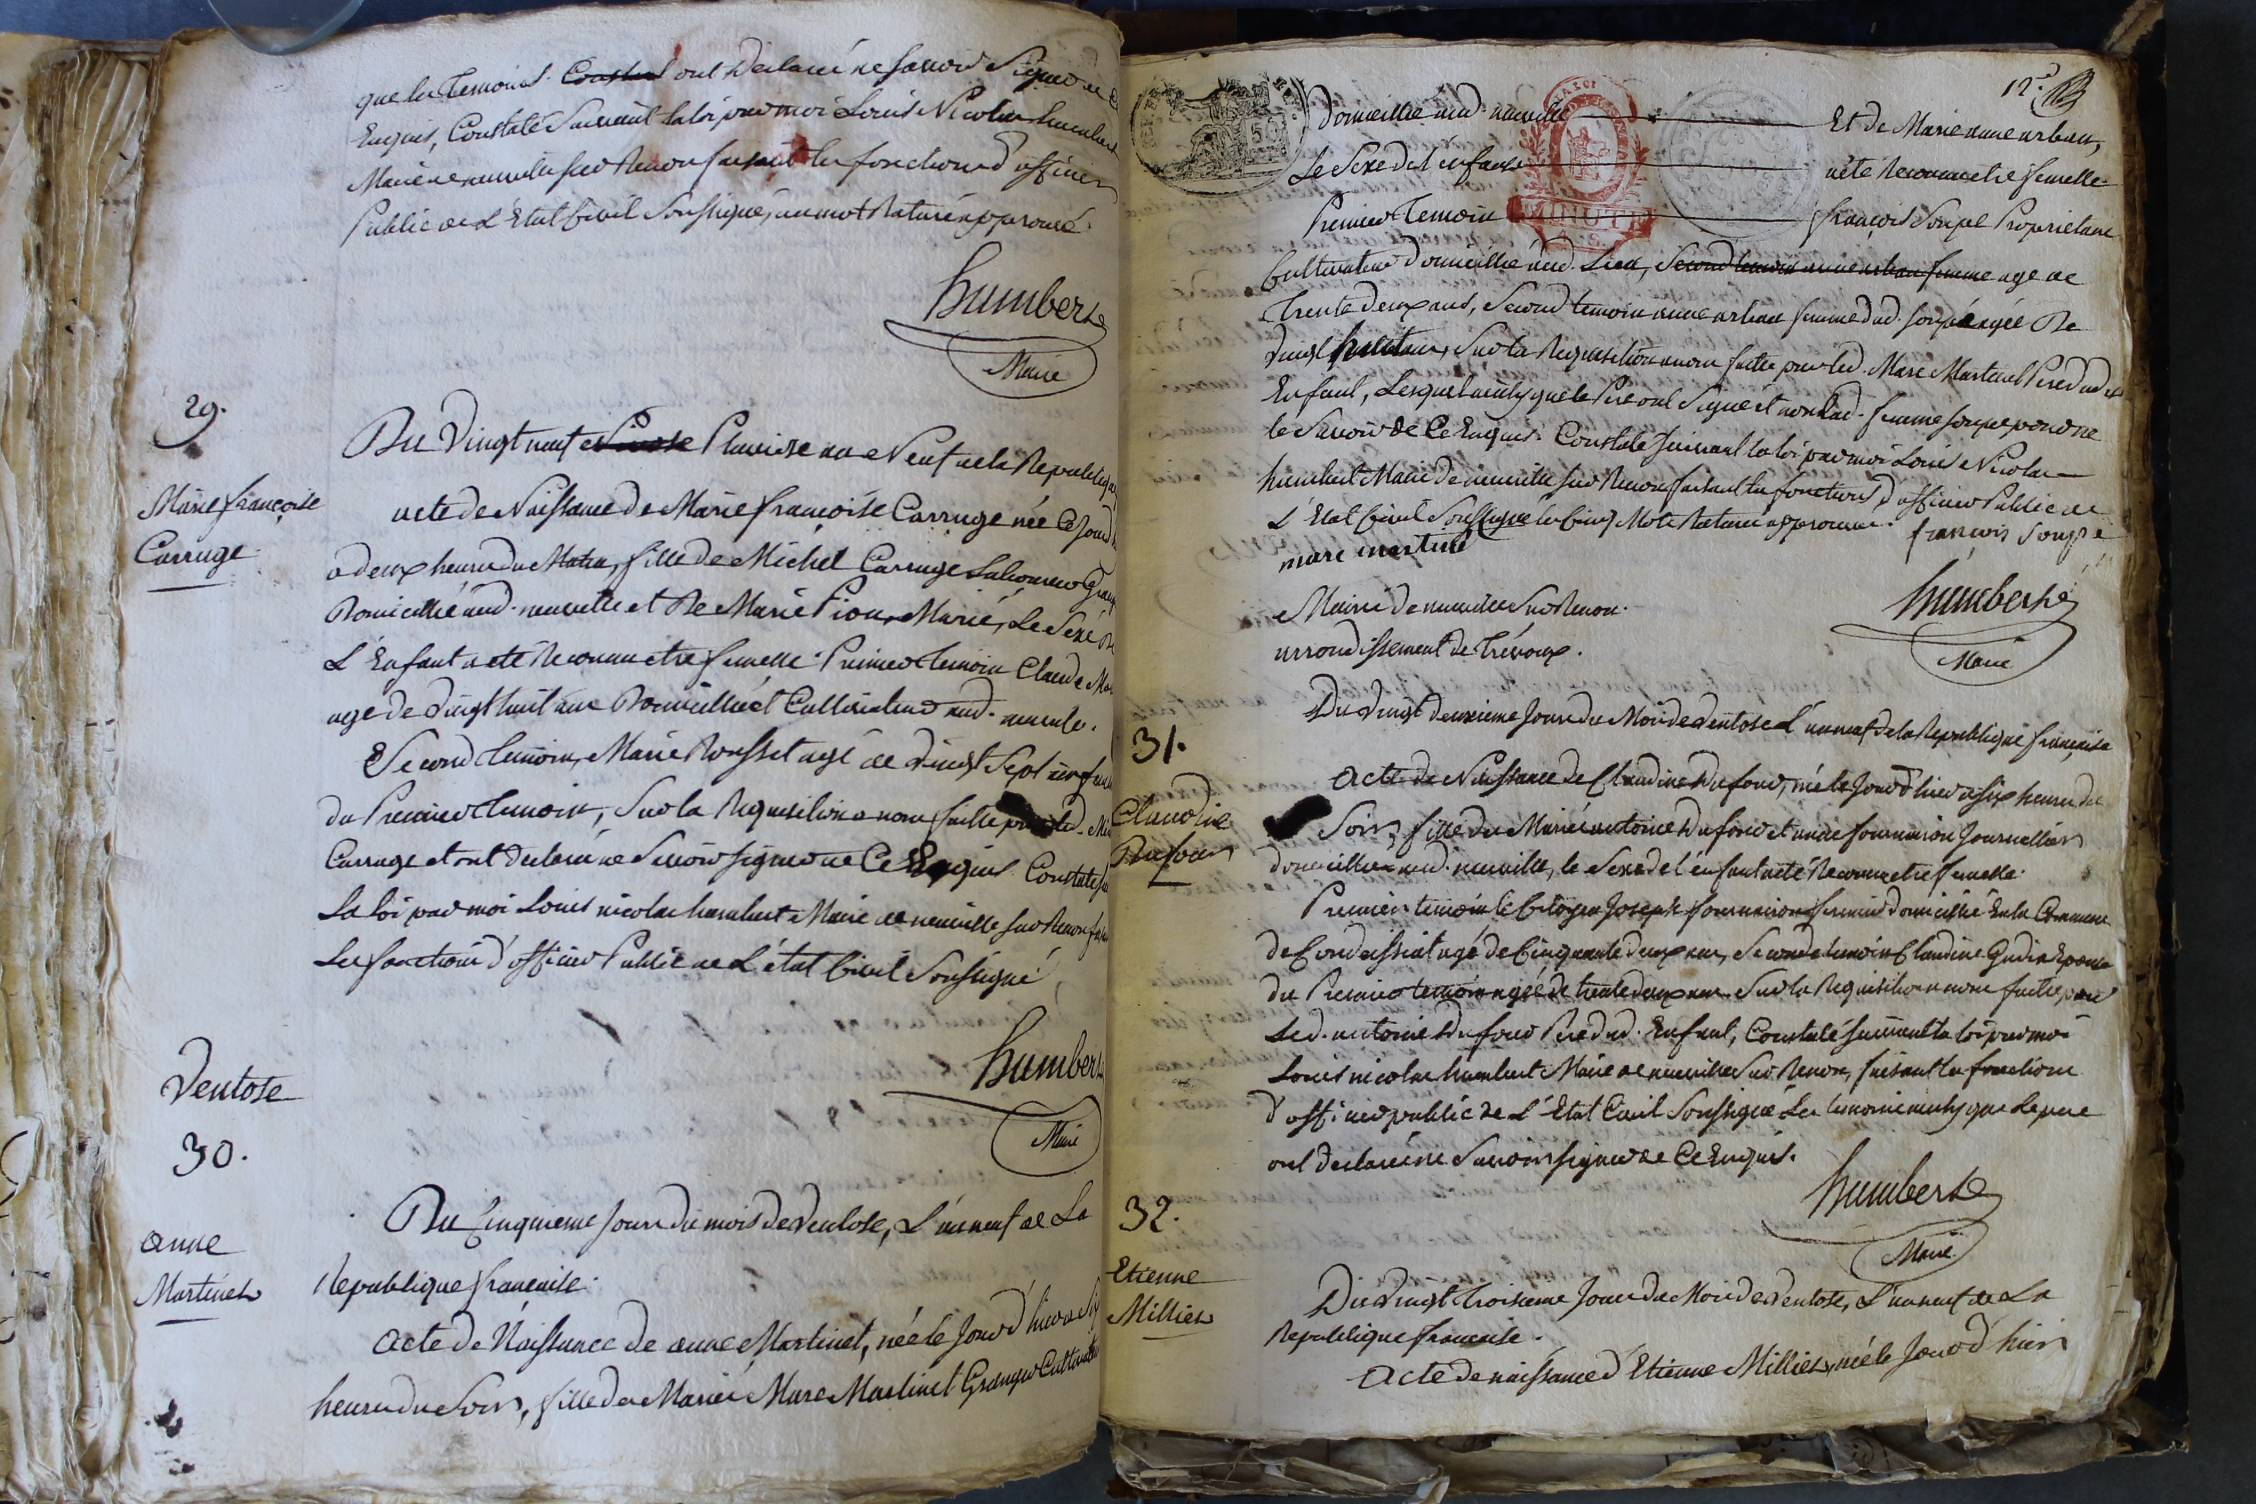 que les temoins Constes ont declaré ne savoir signer de ce
Enquis, Constaté Suivant la loi par moi Louis Nicolas humbert
Maire de neuville sur Renon faisant les fonctions d'officier
Public de L'Etat Civil Soussigné, un mot Raturé approuvé.
humbert
Maire
29.
Marie françoise
Carruge
Du Vingt neuf Pluviose an Neuf de la Republique
acte de Naissance de Marie françoise Carruge née Ce jourd
a deux heures du Matin, fille de Michel Carruge Laboureur Grang
Domicillié aud. neuville et De Marie Pion, Mariés, Le Sexe De
L'Enfant a eté Reconnu etre femelle. Premier temoin Claude
age de Vingt huit ans Domicillié et Cultivateur aud. neuville.
Second temoin, Marie Rousset agé de Vingt Sept ans fem
du Premier temoin, Sur la Requisition a nous faitte par led. Mi
Carruge et ont declaré ne Savoir signer de Ce Enquis. Constaté
La loi par moi Louis nicolas humbert Maire de neuville sur Renon fais
Les fonctions d'officier Public de L'état Civil Soussigné
humbert
Maire
Ventose
30.
anne
Martinet
Du Cinquieme Jour du mois de Ventose, L'an neuf de La
Republique francaise.
Acte de Naissance de anne Martinet, née le Jour d'hier a Six
heures du Soir, fille des Mariés Marc Martinet Granger Cultivateur
12.e
Domicillié aud. neuville Et de Marie anne arban,
Le Sexe de l'enfant a eté Reconnu etre femelle.
MINUTE
Premier temoin françois Soupe Proprietaire
Cultivateur Domicillié aud. Lieu, Second temoin anne arban femme age de
Trente Deux ans, Second temoin anne arban femme dud. soupe agée De
Vingt huit ans, Sur la Requisition a nous faitte par led. Marc Martinet Pere dud.
Enfant, Lesquels ainsy que le Pere ont Signé et non lad. femme soupe pour ne
le Savoir de Ce Enquis. Constaté Suivant la loi par moi Louis Nicolas
humbert Maire de neuville sur Renon faisant les fonctions d'officier Public de
L'Etat Civil Soussigné les Cinq Mots Raturés approuvés. françois Soupe
marc martinet
Mairie de neuville Sur Renon.
humbert
arrondissement de Trévoux.
Maire
Du Vingt deuxieme Jour du Mois de Ventose L'an neuf de la Republique française
31.
Claudine
Dufour
Acte de Naissance de Claudine Dufour, née le Jour d'hier a six heures du
Soir, fille des Mariés antoine Dufour et anne fournion Journalliers
domicilliés aud. neuville, le Sexe de l'enfant a eté Reconnu etre femelle.
Premier temoin le Citoyen Joseph fournion fermier domicillié En la Commune
de Condeissiat agé de Cinquante deux ans, Second temoin Claudine Gudin Epouse
du Premier temoin agée de trente deux ans. Sur la Requisition a nous faitte par
Led. antoine Dufour Pere dud. Enfant, Constaté Suivant la loi par moi
Louis nicolas humbert Maire de neuville Sur Renon, faisant les fonctions
d'officier public de L'Etat Civil Soussigné Les temoins ainsy que le pere
ont declaré ne Savoir signer de Ce Enquis.
humbert
Maire
32.
Etienne
Millier
Du Vingt Troisieme Jour du Mois de Ventose, L'an neuf de La
Republique francaise.
Acte de naissance d'Etienne Millier, né le Jour d'hier